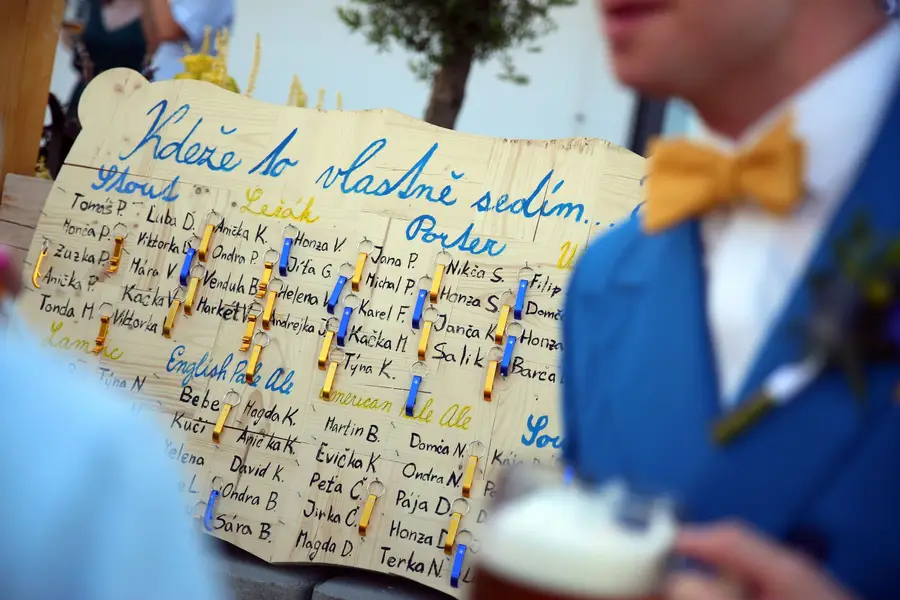 Kdeže to vlastně sedím...
Stout
Tomáš P. Luba D.
Honča P. Viktorka
Zuzka P. Mára V.
Anička P. Kačka
Tonda M. Viktorka
Ležák
Anička K. Honza V.
Ondra P. Jiťa G.
Venduh B. Helena
Markét Ondrejka J.
Porter
Jana P. Nikča S. Filip
Michal P. Honza S. Domč
Karel F. Janča K. Honza
Kačka M. Salik Barča
Týna K.
Lambic
Týna N.
English Pale Ale
Bebe Magda K.
Kučí Anička K.
David K.
Ondra B.
Sára B.
American Pale Ale
Martin B. Domča N.
Evička K. Ondra N.
Peťa Č. Pája D.
Jirka C. Honza D.
Magda D. Terka N.
Sou